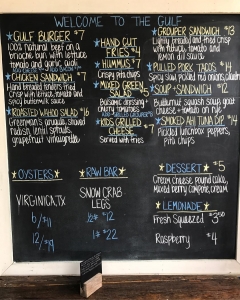 WELCOME TO THE GULF
GULF BURGER $7
100% natural beef on a
brioche bun with lettuce
tomato and garlic aioli
CHICKEN SANDWICH $7
Hand breaded tenders fried
crisp with lettuce, tomato and
spicy buttermilk sauce
ROASTED WAHOO SALAD $16
Greenleaf,
radish, lentil sprouts,
grapefruit vinaigrette
HAND CUT
FRIES $4
HUMMUS $7
Crispy pita chips
MIXED GREEN
SALAD $5
Balsamic dressing
KIDS GRILLED
CHEESE $7
Served with fries
GROUPER SANDWICH $13
Lightly breaded and fried crisp
with lettuce, tomato and
lemon dill sauce
PULLED PORK TACOS $14
Spicy slaw, pickled red onions
SOUP + SANDWICH $12
Butternut squash soup, goat
cheese + tomato on
SMOKED AHI TUNA DIP $14
Pickled peppers,
pita chips
OYSTERS
VIRGINICA, TX
6/
12/
RAW BAR
SNOW CRAB
LEGS
1/2# $12
1# $22
DESSERT $5
Cream cheese pound cake,
Mixed berry compote, cream
LEMONADE
Fresh Squeezed $3.50
Raspberry $4